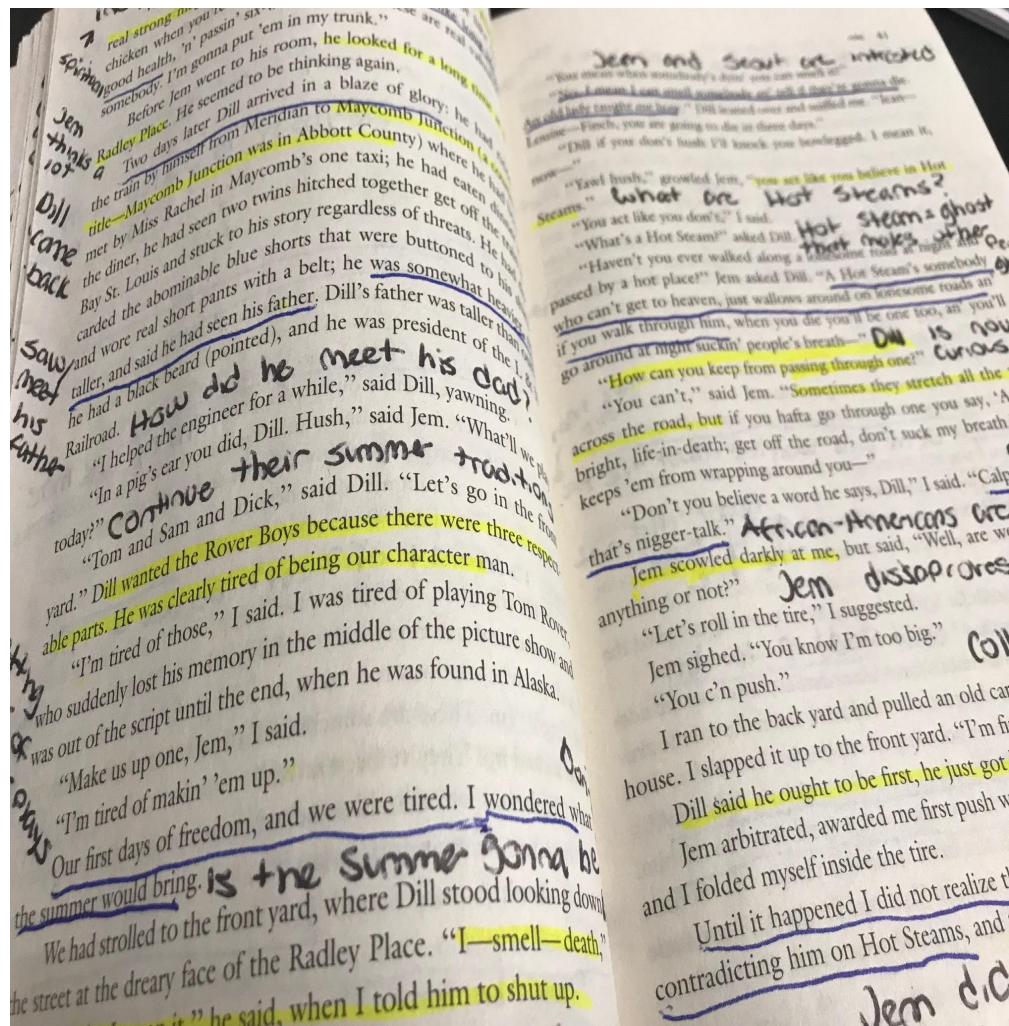 real strong
spiring
chicken when you
good health, 'n' passin' six
somebody. I'm gonna put 'em in my trunk."
Before Jem went to his room, he looked for a long time
Jem
thinks
a
lot
Radley Place. He seemed to be thinking again.
Two days later Dill arrived in a blaze of glory: he had
the train by himself from Meridian to Maycomb Junction (a
title—Maycomb Junction was in Abbott County) where he had
Dill
came
back
met by Miss Rachel in Maycomb's one taxi; he had eaten
the diner, he had seen two twins hitched together get off the
Bay St. Louis and stuck to his story regardless of threats. He had
carded the abominable blue shorts that were buttoned to his
and wore real short pants with a belt; he was somewhat heavier,
saw/
meet
his
father
taller, and said he had seen his father. Dill's father was taller than
he had a black beard (pointed), and he was president of the L. &
Railroad. How did he meet his dad?
"I helped the engineer for a while," said Dill, yawning.
"In a pig's ear you did, Dill. Hush," said Jem. "What'll we
today?" Continue their summer tradition
"Tom and Sam and Dick," said Dill. "Let's go in the front
yard." Dill wanted the Rover Boys because there were three respect-
able parts. He was clearly tired of being our character man.
"I'm tired of those," I said. I was tired of playing Tom Rover,
who suddenly lost his memory in the middle of the picture show and
was out of the script until the end, when he was found in Alaska.
or
plays
"Make us up one, Jem," I said.
"I'm tired of makin' 'em up."
Our first days of freedom, and we were tired. I wondered what
the summer would bring. is the summer gonna be
We had strolled to the front yard, where Dill stood looking down
the street at the dreary face of the Radley Place. "I—smell—death,"
it," he said, when I told him to shut up.
Jem and Scout are intrested
"You mean when somebody's dyin' you can smell it?"
"No, I mean I can smell somebody an' tell if they're gonna die.
An old lady taught me how." Dill leaned over and sniffed me. "Jean—
Louise—Finch, you are going to die in three days."
"Dill if you don't hush I'll knock you bowlegged. I mean it,
now—"
"Yawl hush," growled Jem, "you act like you believe in Hot
Steams." What are Hot Steams?
"You act like you don't," I said.
"What's a Hot Steam?" asked Dill. Hot steam = ghost
that makes other
"Haven't you ever walked along a lonesome road at night and
passed by a hot place?" Jem asked Dill. "A Hot Steam's somebody
who can't get to heaven, just wallows around on lonesome roads an'
if you walk through him, when you die you'll be one too, an' you'll
go around at night suckin' people's breath—" Dill is now
curious
"How can you keep from passing through one?"
"You can't," said Jem. "Sometimes they stretch all the
across the road, but if you hafta go through one you say,
bright, life-in-death; get off the road, don't suck my breath.
keeps 'em from wrapping around you—"
"Don't you believe a word he says, Dill," I said. "Calp
that's nigger-talk." African-Americans are
Jem scowled darkly at me, but said, "Well, are we
anything or not?" Jem dissaproves
"Let's roll in the tire," I suggested.
Jem sighed. "You know I'm too big."
"You c'n push."
I ran to the back yard and pulled an old car
house. I slapped it up to the front yard. "I'm
Dill said he ought to be first, he just got
Jem arbitrated, awarded me first push
and I folded myself inside the tire.
Until it happened I did not realize
contradicting him on Hot Steams, and
Jem did